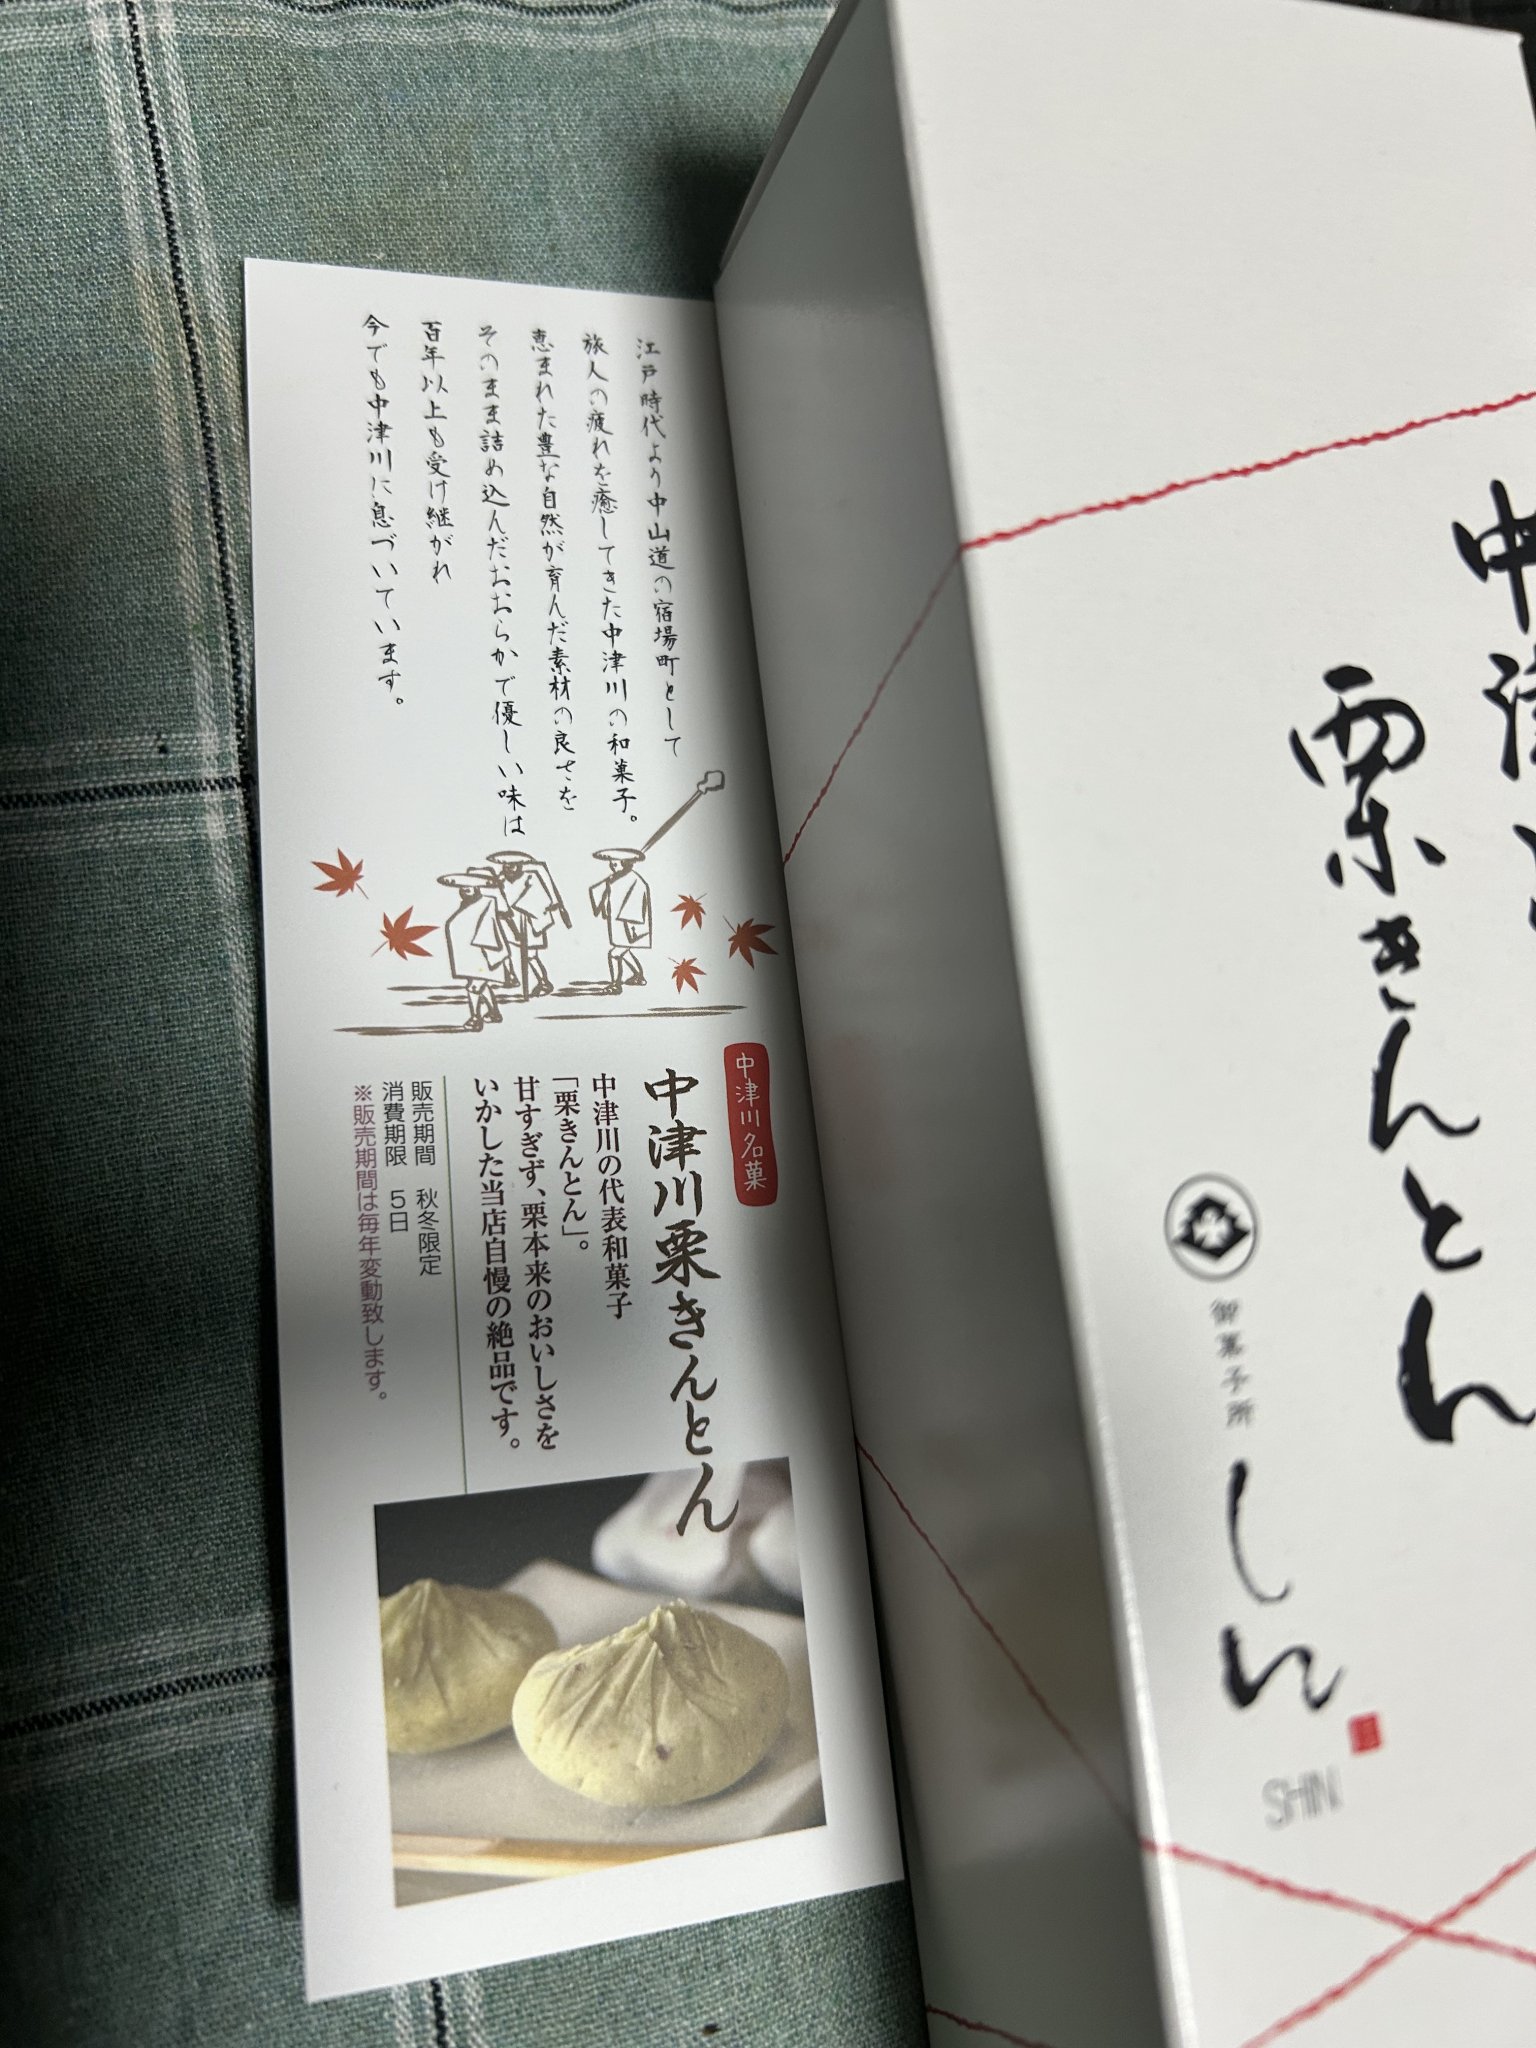 江戸時代より中山道の宿場町として
旅人の疲れを癒してきた中津川の和菓子。
恵まれた豊な自然が育んだ素材の良さを
そのまま詰め込んだおおらかで優しい味は
百年以上も受け継がれ
今でも中津川に息づいています。
中津川名菓
中津川栗きんとん
中津川の代表和菓子
「栗きんとん」。
甘すぎず、栗本来のおいしさを
いかした当店自慢の絶品です。
販売期間 秋冬限定
消費期限 5日
※販売期間は毎年変動致します。
中津
栗きんとん
御菓子所
しん
SHIN